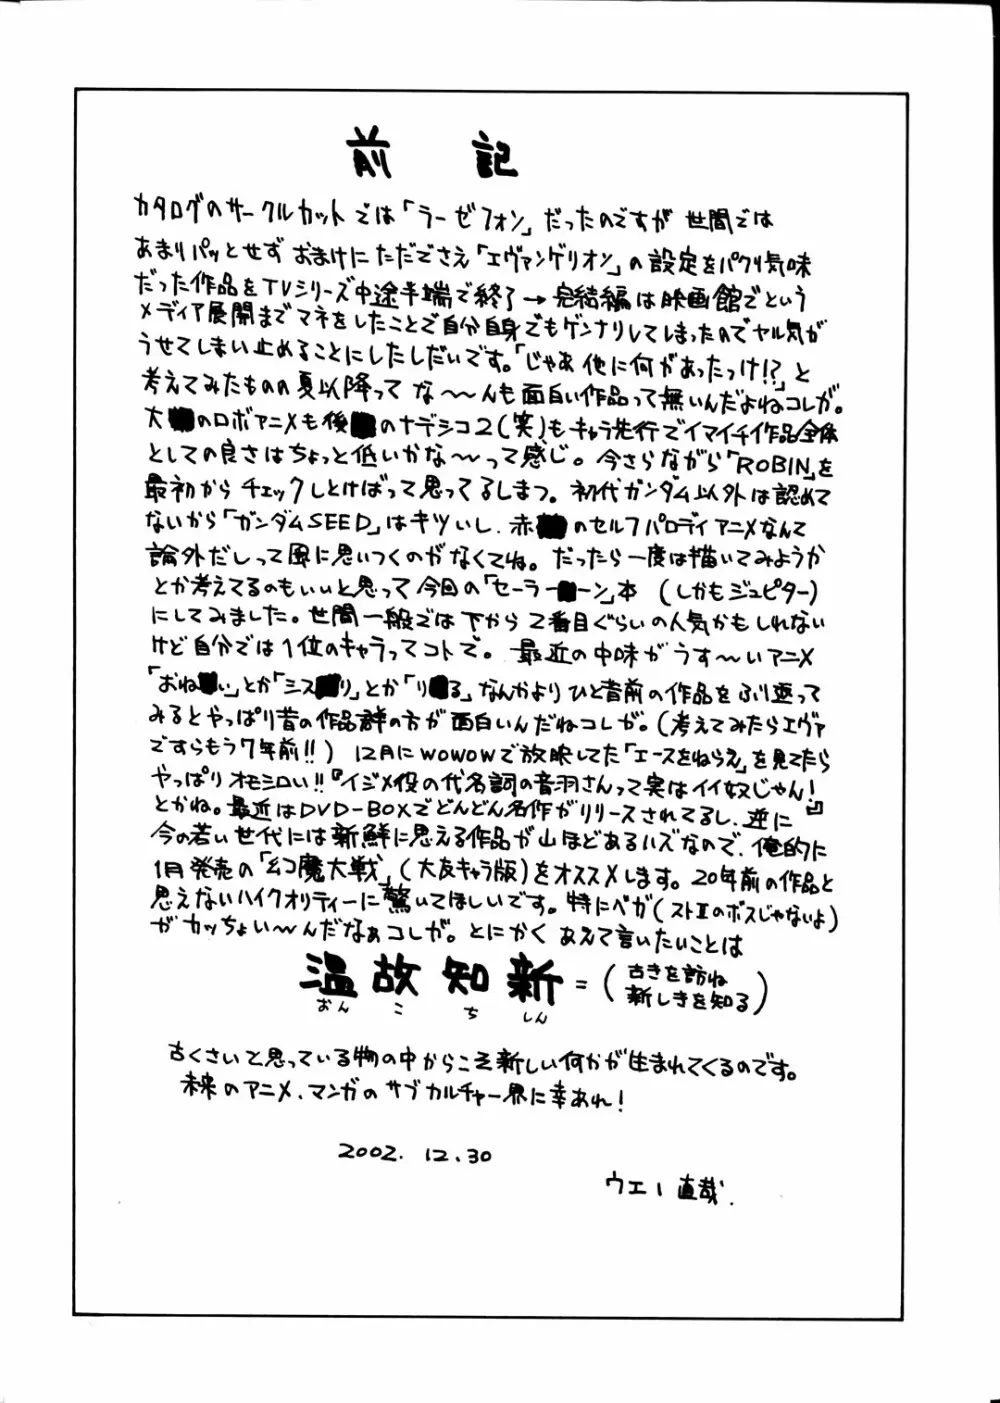 前記
カタログのサークルカットでは「ラーゼフォン」だったのですが 世間では
あまりパッとせず おまけにただでさえ「エヴァンゲリオン」の設定をパクリ気味
だった作品をTVシリーズ中途半端で終了→完結編は映画館でという
メディア展開までマネをしたことで自分自身でもゲンナリしてしまったのでヤル気が
うせてしまい止めることにしたしだいです。「じゃあ他に何があったっけ!?」と
考えてみたものの夏以降って な〜〜んも面白い作品って無いんだよねコレが。
大のロボアニメも後のナデシコ2(笑)もキャラ先行でイマイチ作品全体
としての良さはちょっと低いかな〜〜って感じ。今さらながら「ROBIN」を
最初からチェックしとけばって思ってるしまつ。初代ガンダム以外は認めて
ないから「ガンダムSEED」はキツいし、赤のセルフパロディアニメなんて
論外だしって風に思いつくのがなくてね。だったら一度は描いてみようか
とか考えてるのもいいと思って今回の「セーラーーン」本 (しかもジュピター)
にしてみました。世間一般では下から2番目ぐらいの人気かもしれない
けど自分では1位のキャラってコトで。最近の中味がうす〜いアニメ
「おねい」とか「シスリ」とか「りる」なんかよりひと昔前の作品をふり返って
みるとやっぱり昔の作品群の方が面白いんだねコレが。(考えてみたらエヴァ
ですらもう7年前!!) 12月にWOWOWで放映してた「エースをねらえ」を見てたら
やっぱりオモシロい!!『イジメ役の代名詞の音羽さんって実はイイ奴じゃん!』
とかね。最近はDVD-BOXでどんどん名作がリリースされてるし、逆に
今の若い世代には新鮮に思える作品が山ほどあるハズなので、俺的に
1月発売の「幻魔大戦」(大友キャラ版)をオススメします。20年前の作品と
思えないハイクオリティーに驚いてほしいです。特にベガ(ストIIのボスじゃないよ)
がカッちょい〜んだなぁコレが。とにかくあえて言いたいことは
温故知新=(古きを訪ね
新しきを知る)
おんこちしん
古くさいと思っている物の中からこそ新しい何かが生まれてくるのです。
未来のアニメ、マンガのサブカルチャー界に幸あれ!
2002.12.30
ウエノ直哉.